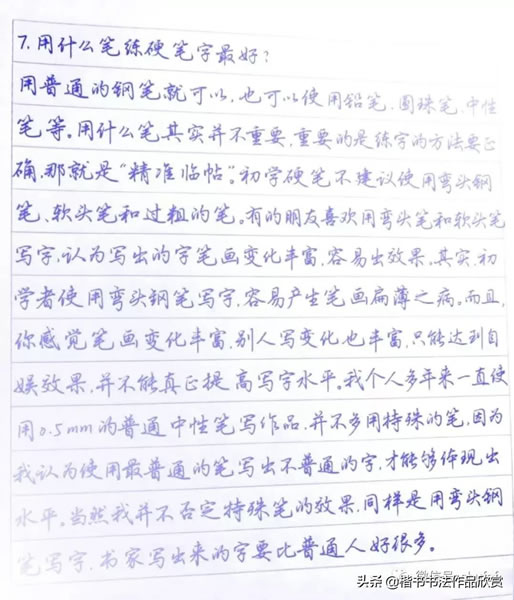 7.用什么笔练硬笔字最好?
用普通的钢笔就可以,也可以使用铅笔、圆珠笔、中性
笔等。用什么笔其实并不重要,重要的是练字的方法要正
确,那就是“精准临帖”。初学硬笔不建议使用弯头钢
笔、软头笔和过粗的笔。有的朋友喜欢用弯头笔和软头笔
写字,认为写出的字笔画变化丰富,容易出效果。其实,初
学者使用弯头钢笔写字,容易产生笔画扁薄之病。而且,
你感觉笔画变化丰富,别人写变化也丰富,只能达到自
娱效果,并不能真正提高写字水平。我个人多年来一直使
用0.5mm的普通中性笔写作品,并不多用特殊的笔,因为
我认为使用最普通的笔写出不普通的字,才能够体现出
水平。当然我并不否定特殊笔的效果,同样是用弯头钢
笔写字,书家写出来的字要比普通人好很多。
头条@楷书书法作品欣赏